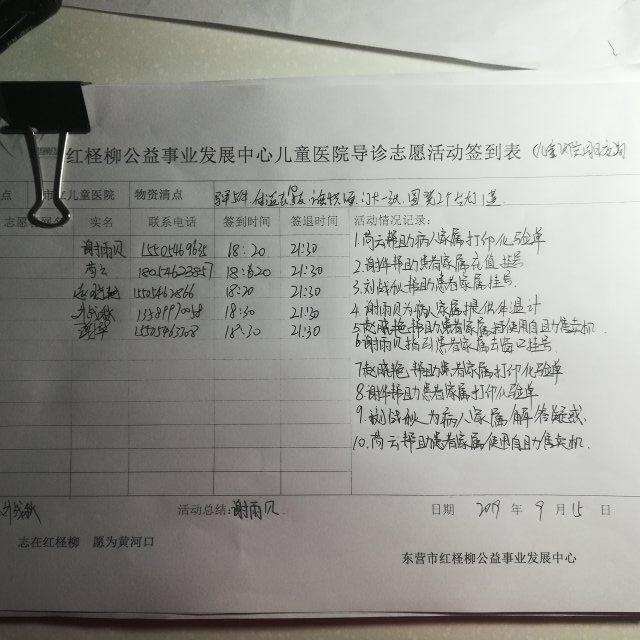 红柽柳公益事业发展中心儿童医院导诊志愿活动签到表
点 市立儿童医院 物资清点
实名 联系电话 签到时间 签退时间 活动情况记录:
谢雨风 15505469635 18:20 21:30
芮云 21:30
18:20 21:30
刘战秋 18:30 21:30
18:30 21:30
1.芮云帮助病人家属打印化验单
2.谢华帮助患者家属充值挂号
3.刘战秋帮助患者家属挂号.
4.谢雨风为病人家属提供体温计
5.赵晓艳帮助患者家属使用自助售卖机.
6.谢雨风指引患者家属去窗口挂号
7.赵晓艳帮助患者家属打印化验单
8.谢华帮助患者家属打印化验单
9.刘战秋为病人家属解答疑惑.
10.芮云帮助患者家属使用自助售卖机.
刘战秋 活动总结:谢雨风 日期 2019 年 9 月 15 日
志在红柽柳 愿为黄河口
东营市红柽柳公益事业发展中心